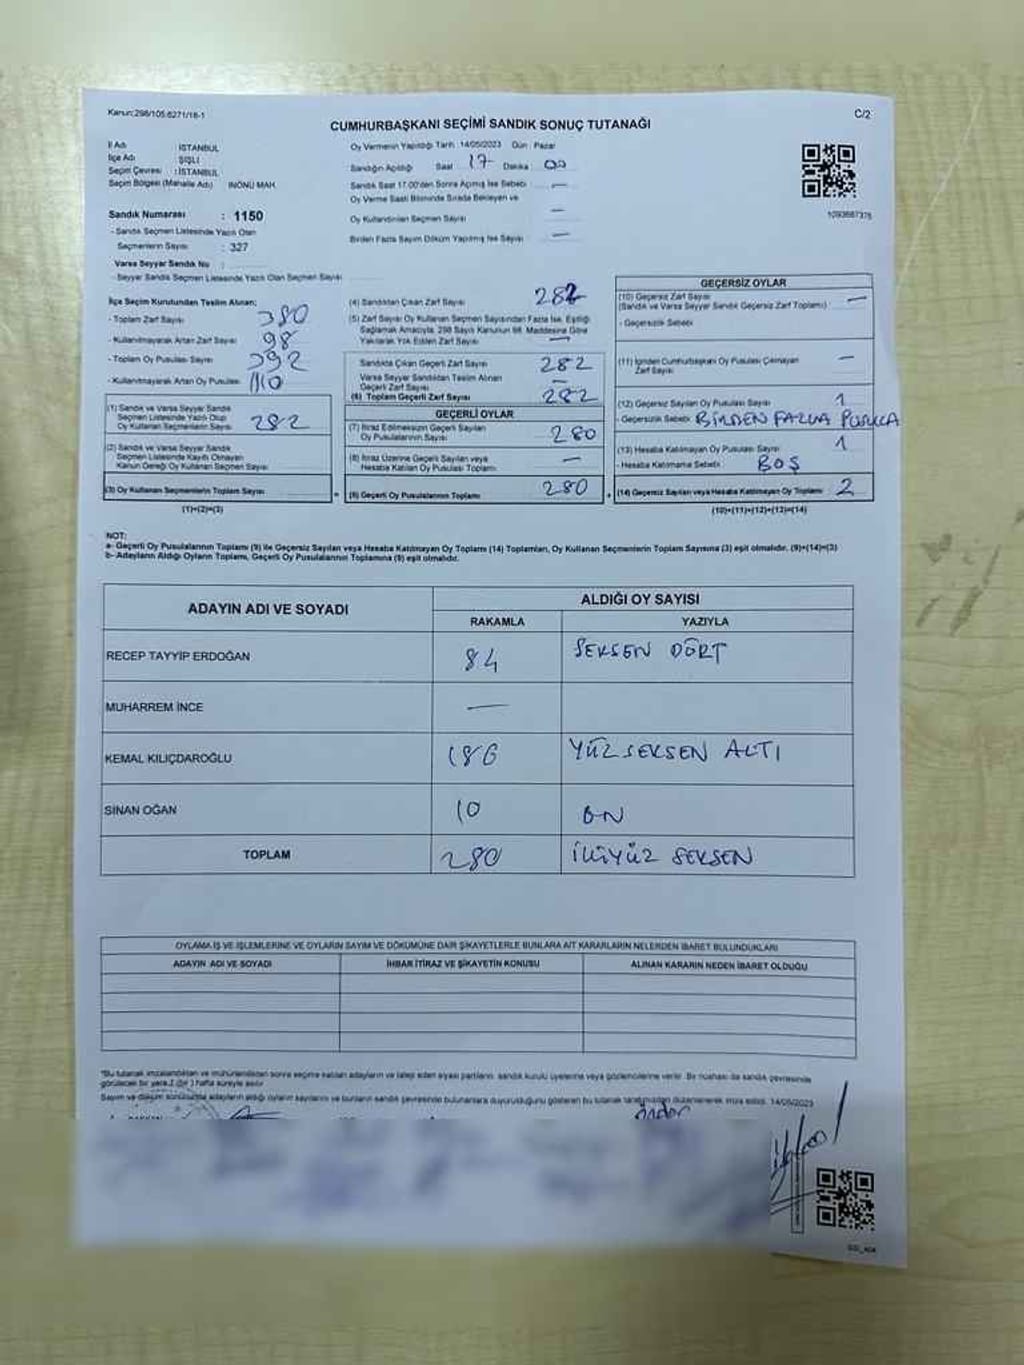 Kanun:298/105.6271/18-1
C/2
CUMHURBAŞKANI SEÇİMİ SANDIK SONUÇ TUTANAĞI
İl Adı : İSTANBUL
İlçe Adı : ŞİŞLİ
Seçim Çevresi : İSTANBUL
Seçim Bölgesi (Mahalle Adı) İNÖNÜ MAH.
Sandık Numarası : 1150
- Sandık Seçmen Listesinde Yazılı Olan
Seçmenlerin Sayısı : 327
Varsa Seyyar Sandık No :
- Seyyar Sandık Seçmen Listesinde Yazılı Olan Seçmen Sayısı
Oy Vermenin Yapıldığı Tarih :14/05/2023 Gün : Pazar
Sandığın Açıldığı Saat 17 Dakika 00
Sandık Saat 17.00'den Sonra Açılmış İse Sebebi —
Oy Verme Saati Bitiminde Sırada Bekleyen ve
Oy Kullandırılan Seçmen Sayısı —
Birden Fazla Sayım Döküm Yapılmış İse Sayısı —
1093687376
İlçe Seçim Kurulundan Teslim Alınan;
- Toplam Zarf Sayısı 380
- Kullanılmayarak Artan Zarf Sayısı 98
- Toplam Oy Pusulası Sayısı 392
- Kullanılmayarak Artan Oy Pusulası 110
(1) Sandık ve Varsa Seyyar Sandık
Seçmen Listesinde Yazılı Olup
Oy Kullanan Seçmenlerin Sayısı 282
(2) Sandık ve Varsa Seyyar Sandık
Seçmen Listesinde Kayıtlı Olmayan
Kanun Gereği Oy Kullanan Seçmen Sayısı
(3) Oy Kullanan Seçmenlerin Toplam Sayısı
(1)+(2)=(3)
(4) Sandıktan Çıkan Zarf Sayısı 282
(5) Zarf Sayısı Oy Kullanan Seçmen Sayısından Fazla İse, Eşitliği
Sağlamak Amacıyla, 298 Sayılı Kanunun 98. Maddesine Göre
Yakılarak Yok Edilen Zarf Sayısı —
Sandıkta Çıkan Geçerli Zarf Sayısı 282
Varsa Seyyar Sandıktan Teslim Alınan
Geçerli Zarf Sayısı —
(6) Toplam Geçerli Zarf Sayısı 282
GEÇERLİ OYLAR
(7) İtiraz Edilmeksizin Geçerli Sayılan
Oy Pusulalarının Sayısı 280
(8) İtiraz Üzerine Geçerli Sayılan veya
Hesaba Katılan Oy Pusulası Toplamı —
(9) Geçerli Oy Pusulalarının Toplamı 280
GEÇERSİZ OYLAR
(10) Geçersiz Zarf Sayısı —
(Sandık ve Varsa Seyyar Sandık Geçersiz Zarf Toplamı)
- Geçersizlik Sebebi
(11) İçinden Cumhurbaşkanı Oy Pusulası Çıkmayan
Zarf Sayısı —
(12) Geçersiz Sayılan Oy Pusulası Sayısı 1
- Geçersizlik Sebebi BİRDEN FAZLA PUSULA
(13) Hesaba Katılmayan Oy Pusulası Sayısı 1
- Hesaba Katılmama Sebebi BOŞ
(14) Geçersiz Sayılan veya Hesaba Katılmayan Oy Toplamı 2
(10)+(11)+(12)+(13)=(14)
NOT:
a- Geçerli Oy Pusulalarının Toplamı (9) ile Geçersiz Sayılan veya Hesaba Katılmayan Oy Toplamı (14) Toplamları, Oy Kullanan Seçmenlerin Toplam Sayısına (3) eşit olmalıdır. (9)+(14)=(3)
b- Adayların Aldığı Oyların Toplamı, Geçerli Oy Pusulalarının Toplamına (9) eşit olmalıdır.
ADAYIN ADI VE SOYADI
ALDIĞI OY SAYISI
RAKAMLA YAZIYLA
RECEP TAYYİP ERDOĞAN 84 SEKSEN DÖRT
MUHARREM İNCE —
KEMAL KILIÇDAROĞLU 186 YÜZSEKSEN ALTI
SİNAN OĞAN 10 ON
TOPLAM 280 İKİYÜZ SEKSEN
OYLAMA İŞ VE İŞLEMLERİNE VE OYLARIN SAYIM VE DÖKÜMÜNE DAİR ŞİKAYETLERLE BUNLARA AİT KARARLARIN NELERDEN İBARET BULUNDUKLARI
ADAYIN ADI VE SOYADI İHBAR İTİRAZ VE ŞİKAYETİN KONUSU ALINAN KARARIN NEDEN İBARET OLDUĞU
*Bu tutanak imzalandıktan ve mühürlendikten sonra seçime katılan adayların ve talep eden siyasi partilerin sandık kurulu üyelerine veya gözlemcilerine verilir. Bir nüshası da sandık çevresinde
görülecek bir yere 1 (bir) hafta süreyle asılır.
Sayım ve döküm sonucunda adayların aldığı oyların sayılarını ve bunların sandık çevresinde bulunanlara duyurulduğunu gösteren bu tutanak tarafımızdan düzenlenerek imza edildi. 14/05/2023